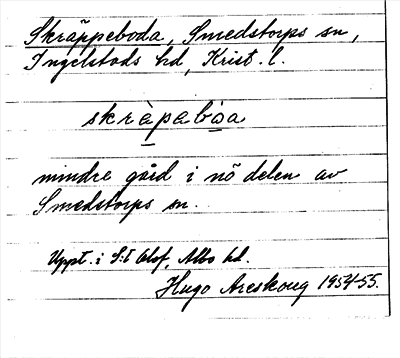 Skräppeboda, Smedstorps sn,
Ingelstads hd, Krist. l.
skrèpabòa
mindre gård i nö delen av
Smedstorps sn.
Uppt. i S:t Olof, Albo hd.
Hugo Areskoug 1954-55.